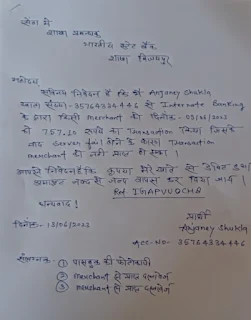 सेवा में
शाखा प्रबन्धक
भारतीय स्टेट बैंक
शाखा
महोदय
सविनय निवेदन है कि मैं Anjaney Shukla
खाता संख्या - 35764334446 से Internate Banking
के द्वारा किसी merchant को दिनांक - 09/06/2023
को 757.20 रुपये का Transaction किया जिसके
बाद Server fail होने के कारण Transaction
merchant को नहीं प्राप्त हो सका।
आपसे निवेदन है कि कृपया मेरे खाते से डेबिट हुआ
जल्द से जल्द वापस कर दिया जाय।
धन्यवाद!
दिनांक - 13/06/2022
प्रार्थी
Anjaney Shukla
Acc-No- 35764334446
संलग्नक - ① पासबुक की फोटोकापी
② merchant से प्राप्त
③ merchant से प्राप्त